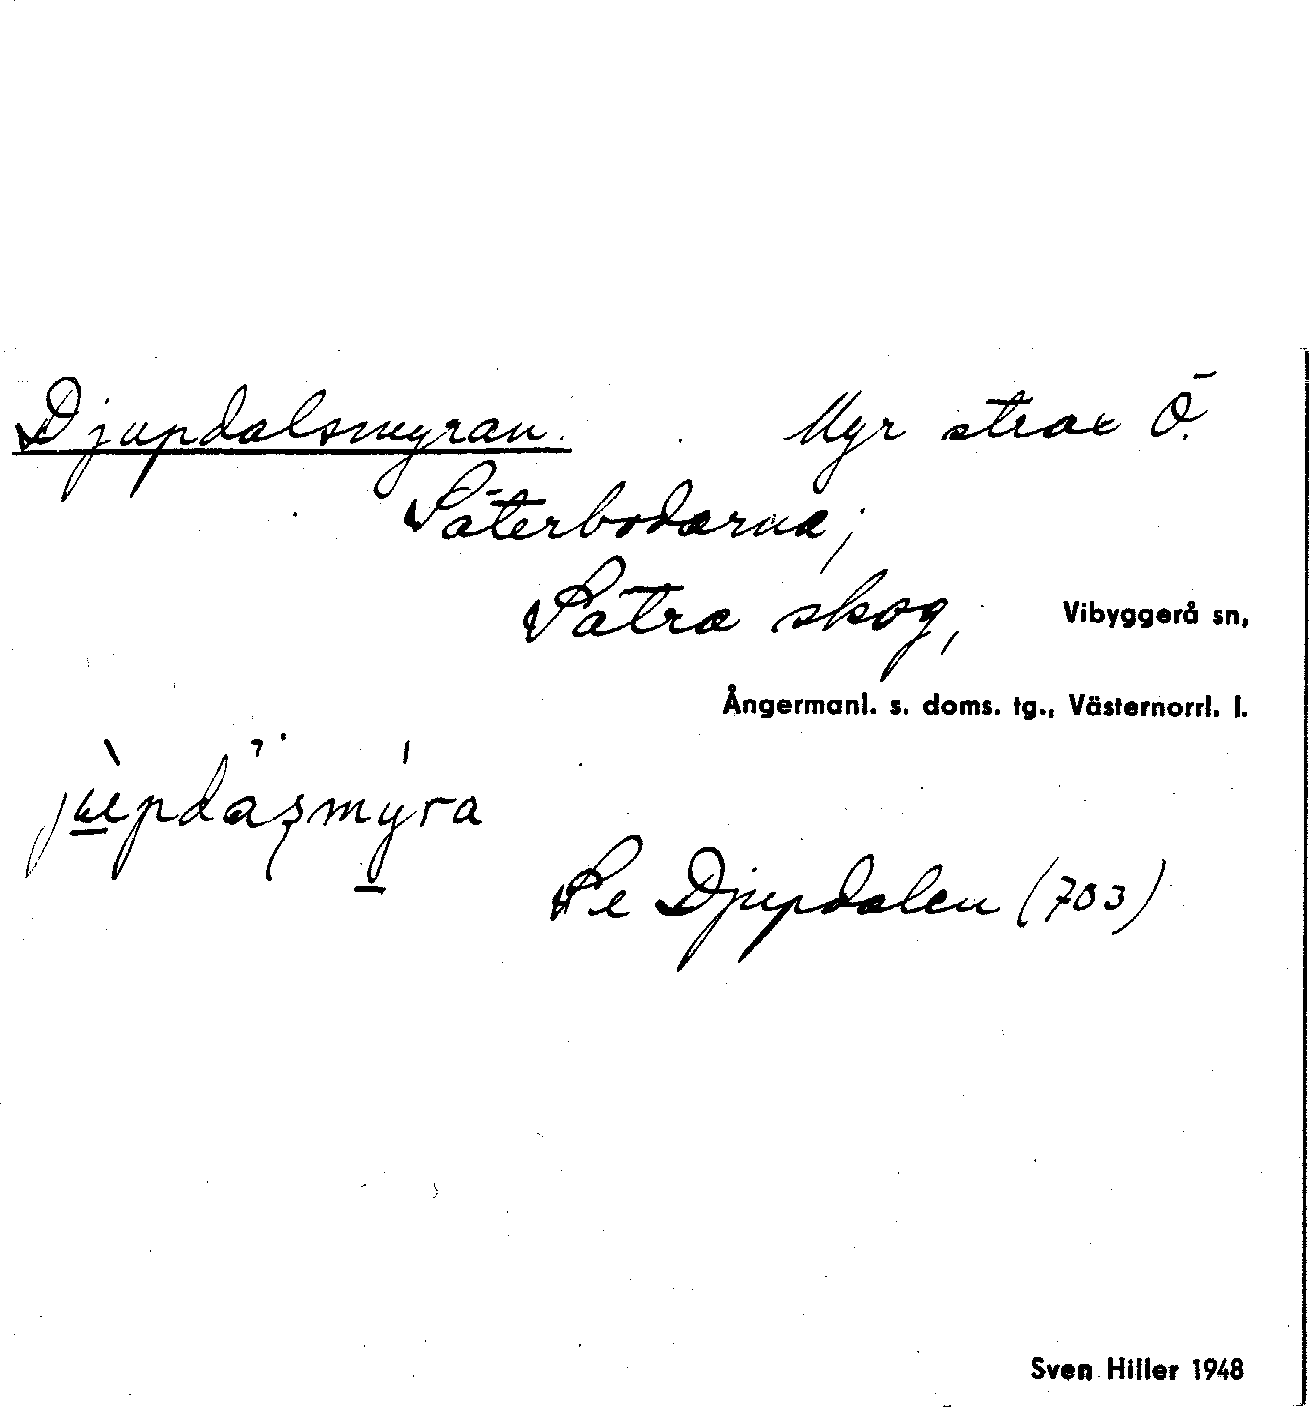 Djupdalsmyran. Myr strax Ö.
Säterbodarna;
Sätra skog, Vibyggerå sn,
Ångermanl. s. doms. tg., Västernorrl. l.
Se Djupdalen (703)
Sven Hiller 1948